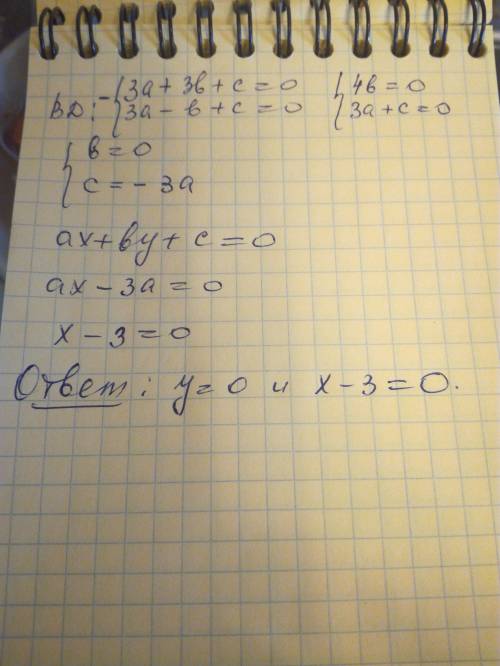 BD: - { 3a + 3b + c = 0 { 4b = 0
3a - b + c = 0 3a + c = 0
{ b = 0
c = - 3a
ax + by + c = 0
ax - 3a = 0
x - 3 = 0
Ответ: y = 0 и x - 3 = 0.